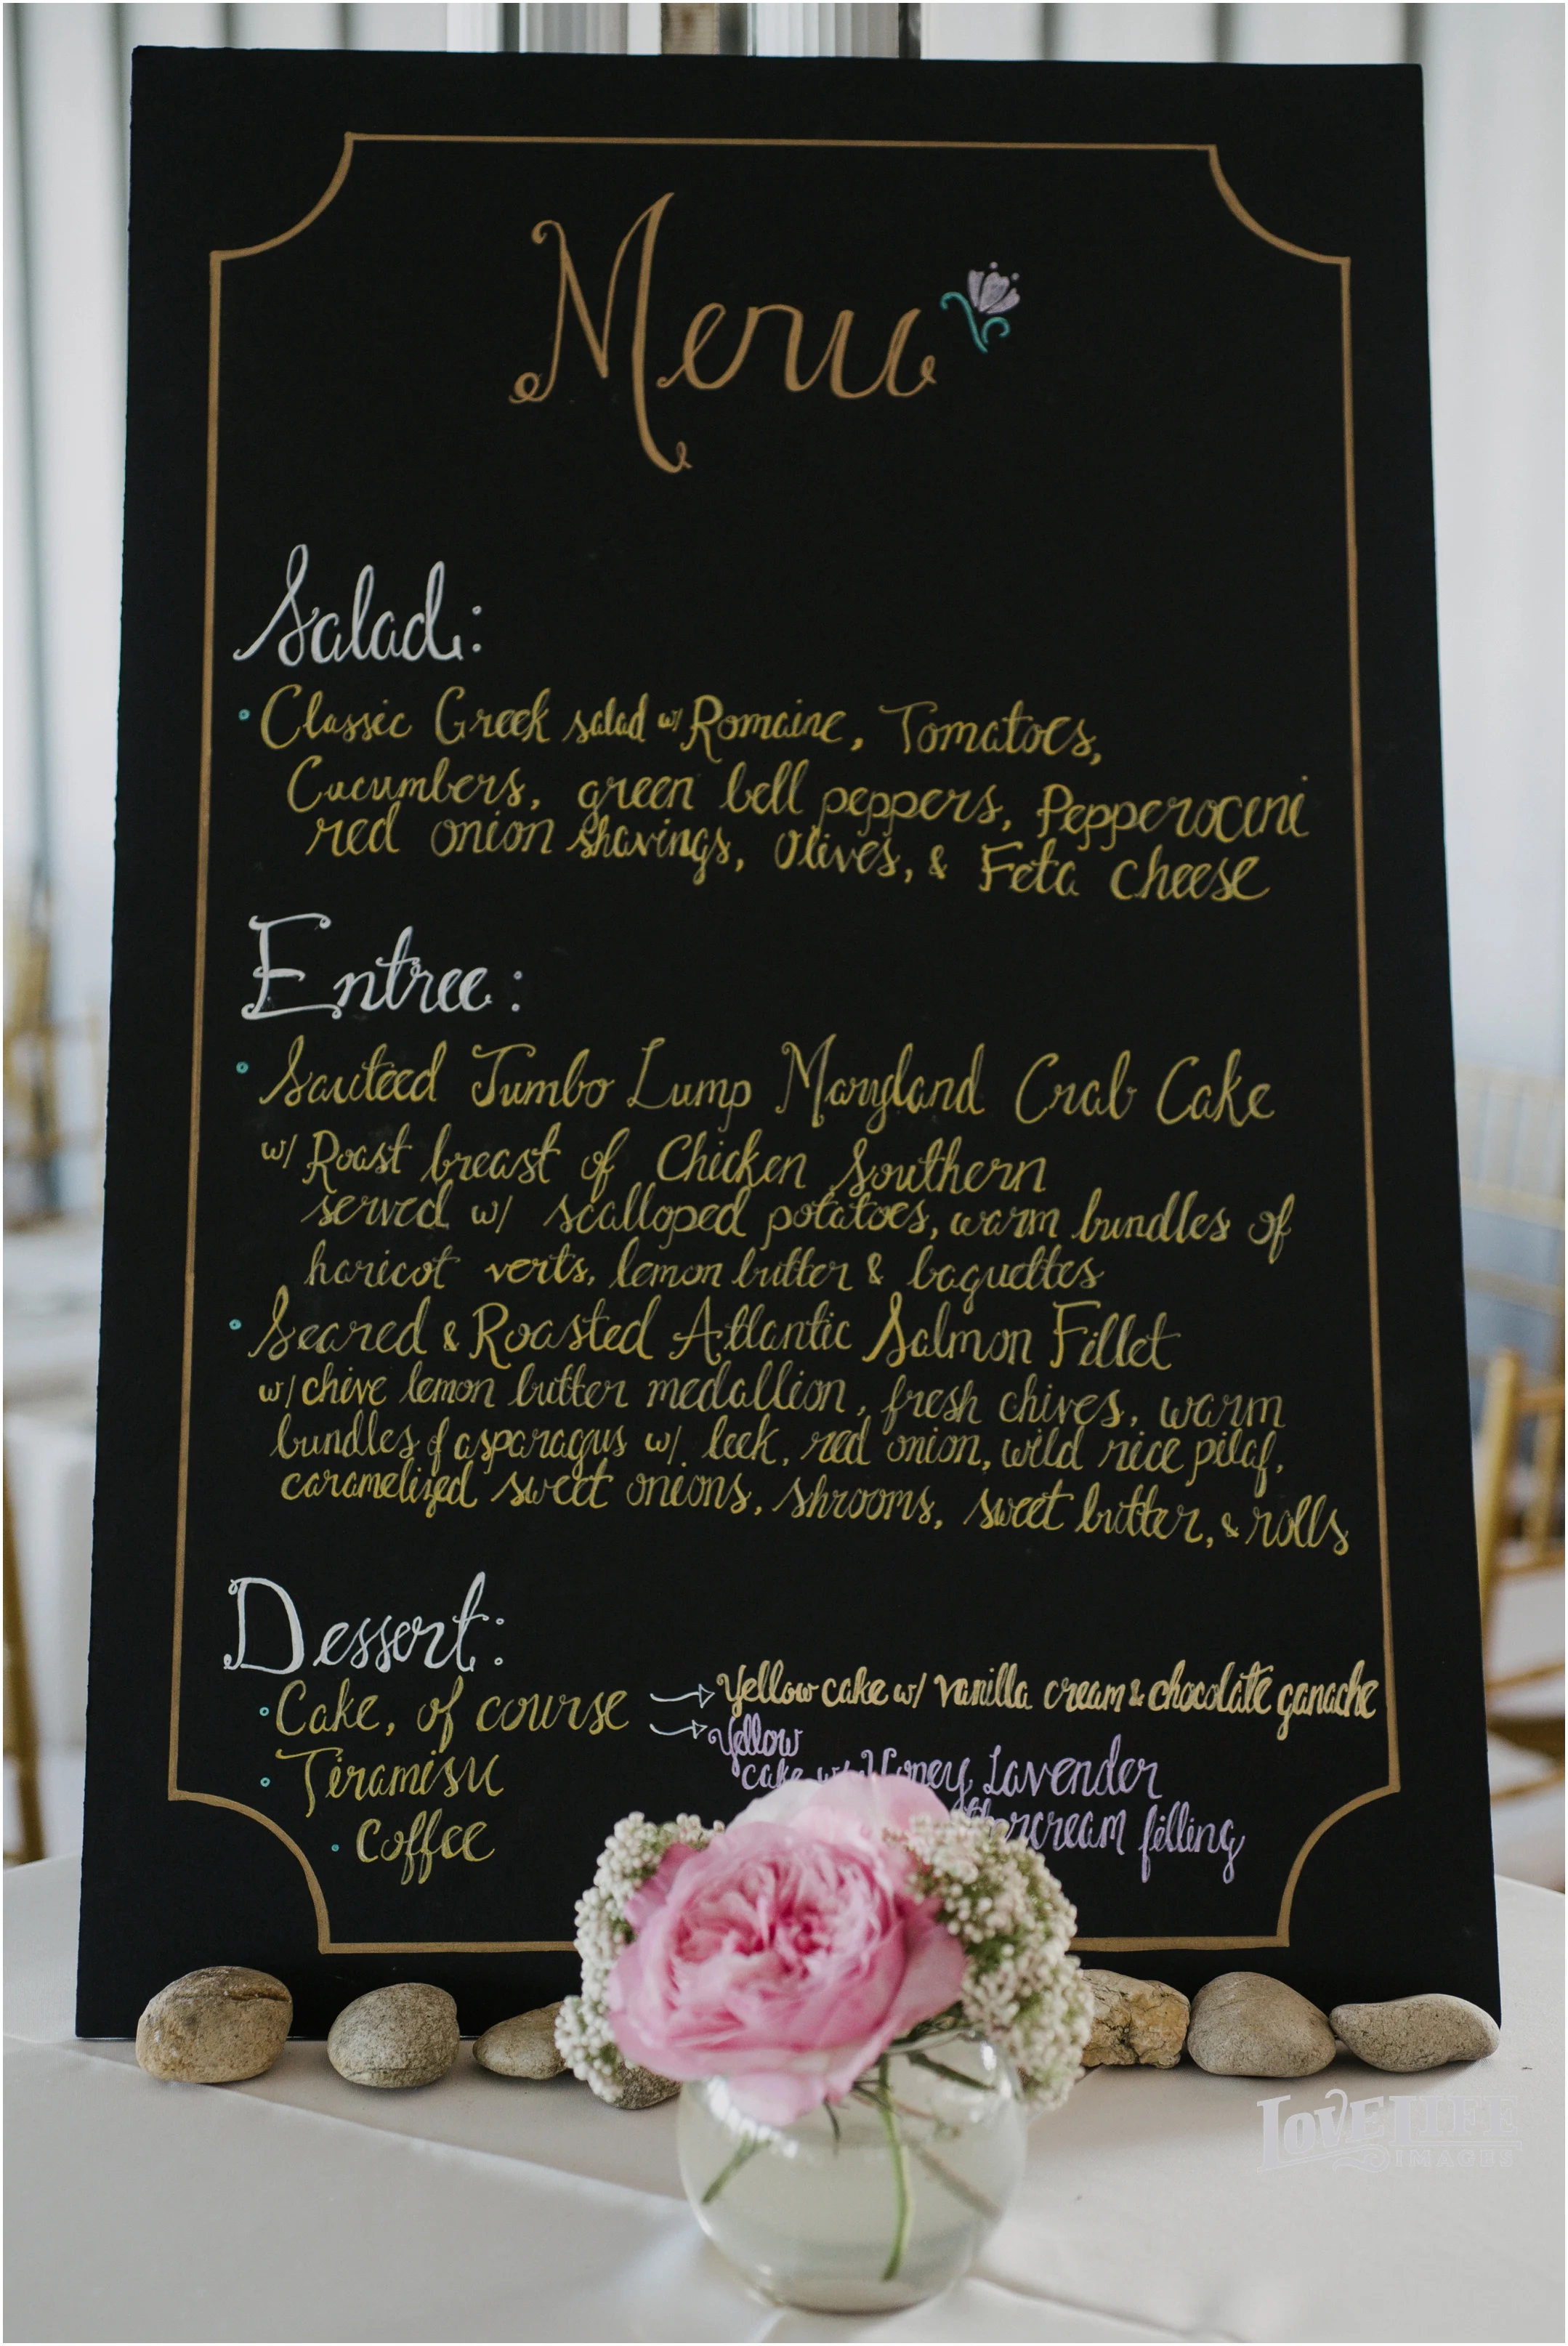 Menu
Salad:
• Classic Greek salad w/ Romaine, Tomatoes,
Cucumbers, green bell peppers, Pepperocini
red onion shavings, Olives, & Feta Cheese
Entree:
• Sauteed Jumbo Lump Maryland Crab Cake
w/ Roast breast of Chicken Southern
served w/ scalloped potatoes, warm bundles of
haricot verts, lemon butter & baguettes
• Seared & Roasted Atlantic Salmon Fillet
w/ chive lemon butter medallion, fresh chives, warm
bundles of asparagus w/ leek, red onion, wild rice pilaf,
caramelized sweet onions, shrooms, sweet butter, & rolls
Dessert:
• Cake, of course → Yellow cake w/ vanilla cream & chocolate ganache
→ Yellow
cake w/ Honey Lavender
filling
• Tiramisu
• Coffee
LOVE LIFE
IMAGES